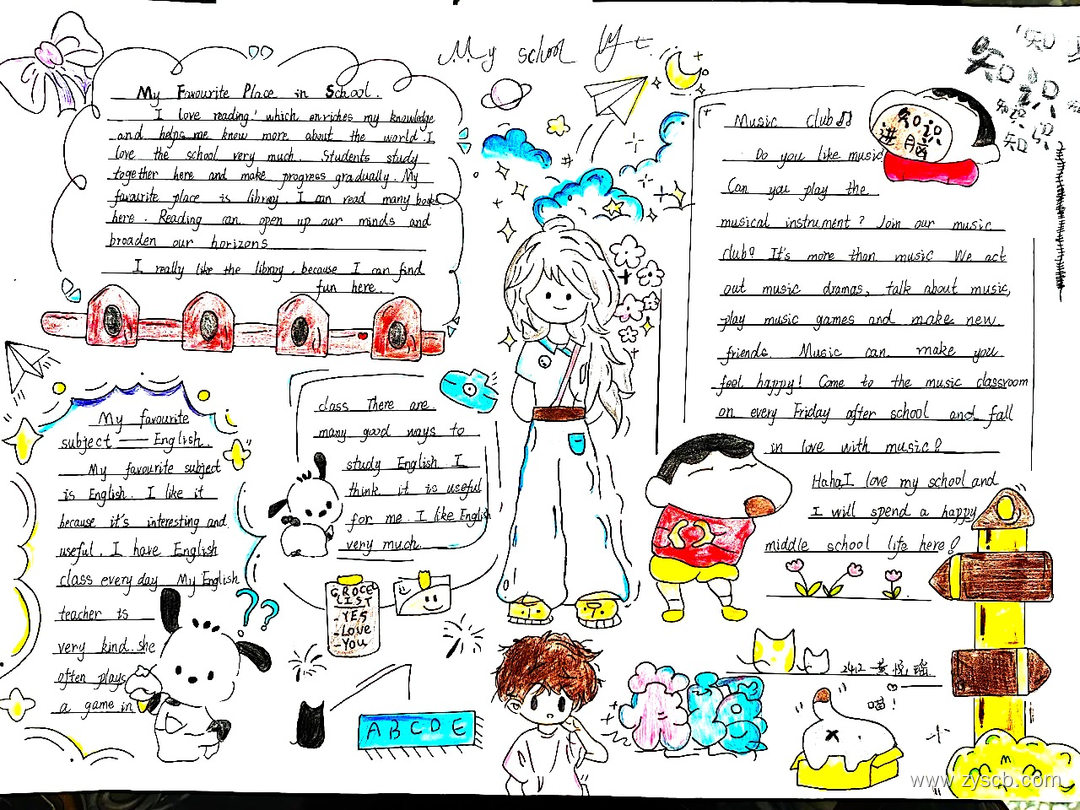 My school life
My Favourite Place in School.
I love reading, which enriches my knowledge
and helps me know more about the world. I
love the school very much. Students study
together here and make progress gradually. My
favourite place is library. I can read many books
here. Reading can open up our minds and
broaden our horizons
I really like the library, because I can find
fun here.
My favourite
subject — English.
My favourite subject
is English. I like it
because it's interesting and
useful. I have English
class every day My English
teacher is
very kind. she
often plays
a game in
class There are
many good ways to
study English I
think it is useful
for me. I like English
very much.
GROCE
LIST
-YES
-Love
-You
A B C D E
Music club
Do you like music
Can you play the
musical instrument? Join our music
club! It's more than music We act
out music dramas, talk about music,
play music games and make new
friends. Music can make you
feel happy! Come to the music classroom
on every Friday after school and fall
in love with music!
Haha I love my school and
I will spend a happy
middle school life here!
知识
进脑
知识
知识
知识
知识
2412 黄悦瑶
喵!
www.zyscb.com